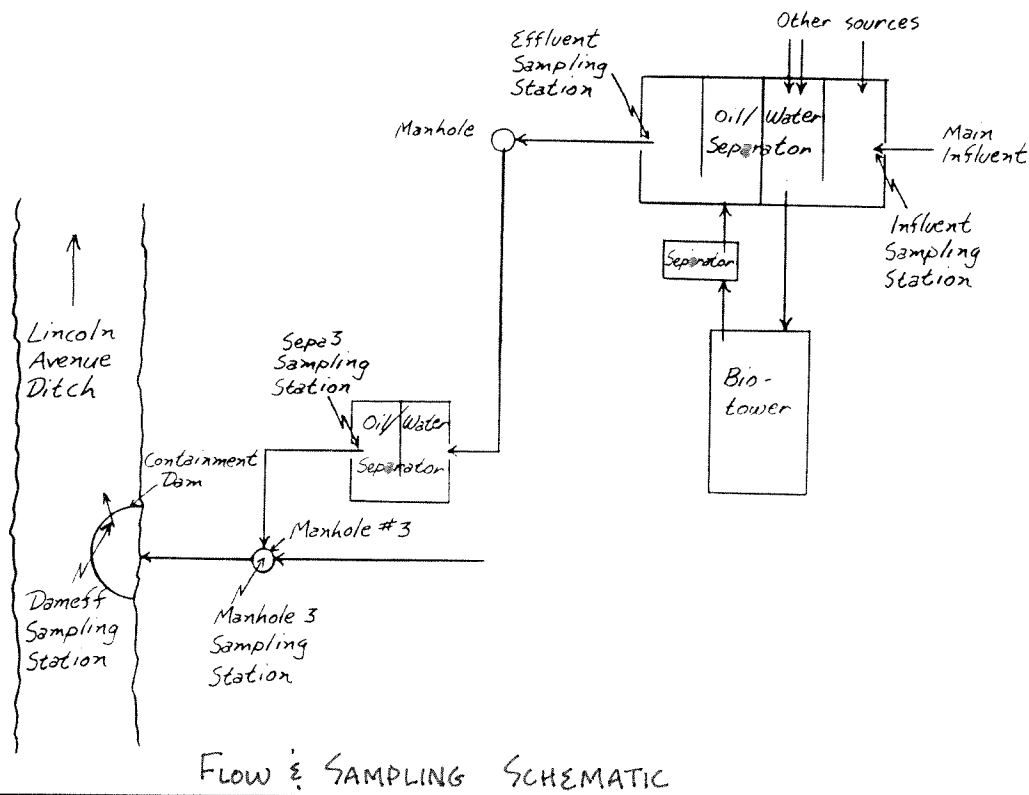 Other sources
Effluent
Sampling
Station
Manhole
Oil/Water
Separator
Main
Influent
Influent
Sampling
Station
Separator
Bio-
tower
Lincoln
Avenue
Ditch
Sepa3
Sampling
Station
Oil/Water
Separator
Containment
Dam
Manhole #3
Dameff
Sampling
Station
Manhole 3
Sampling
Station
FLOW & SAMPLING SCHEMATIC